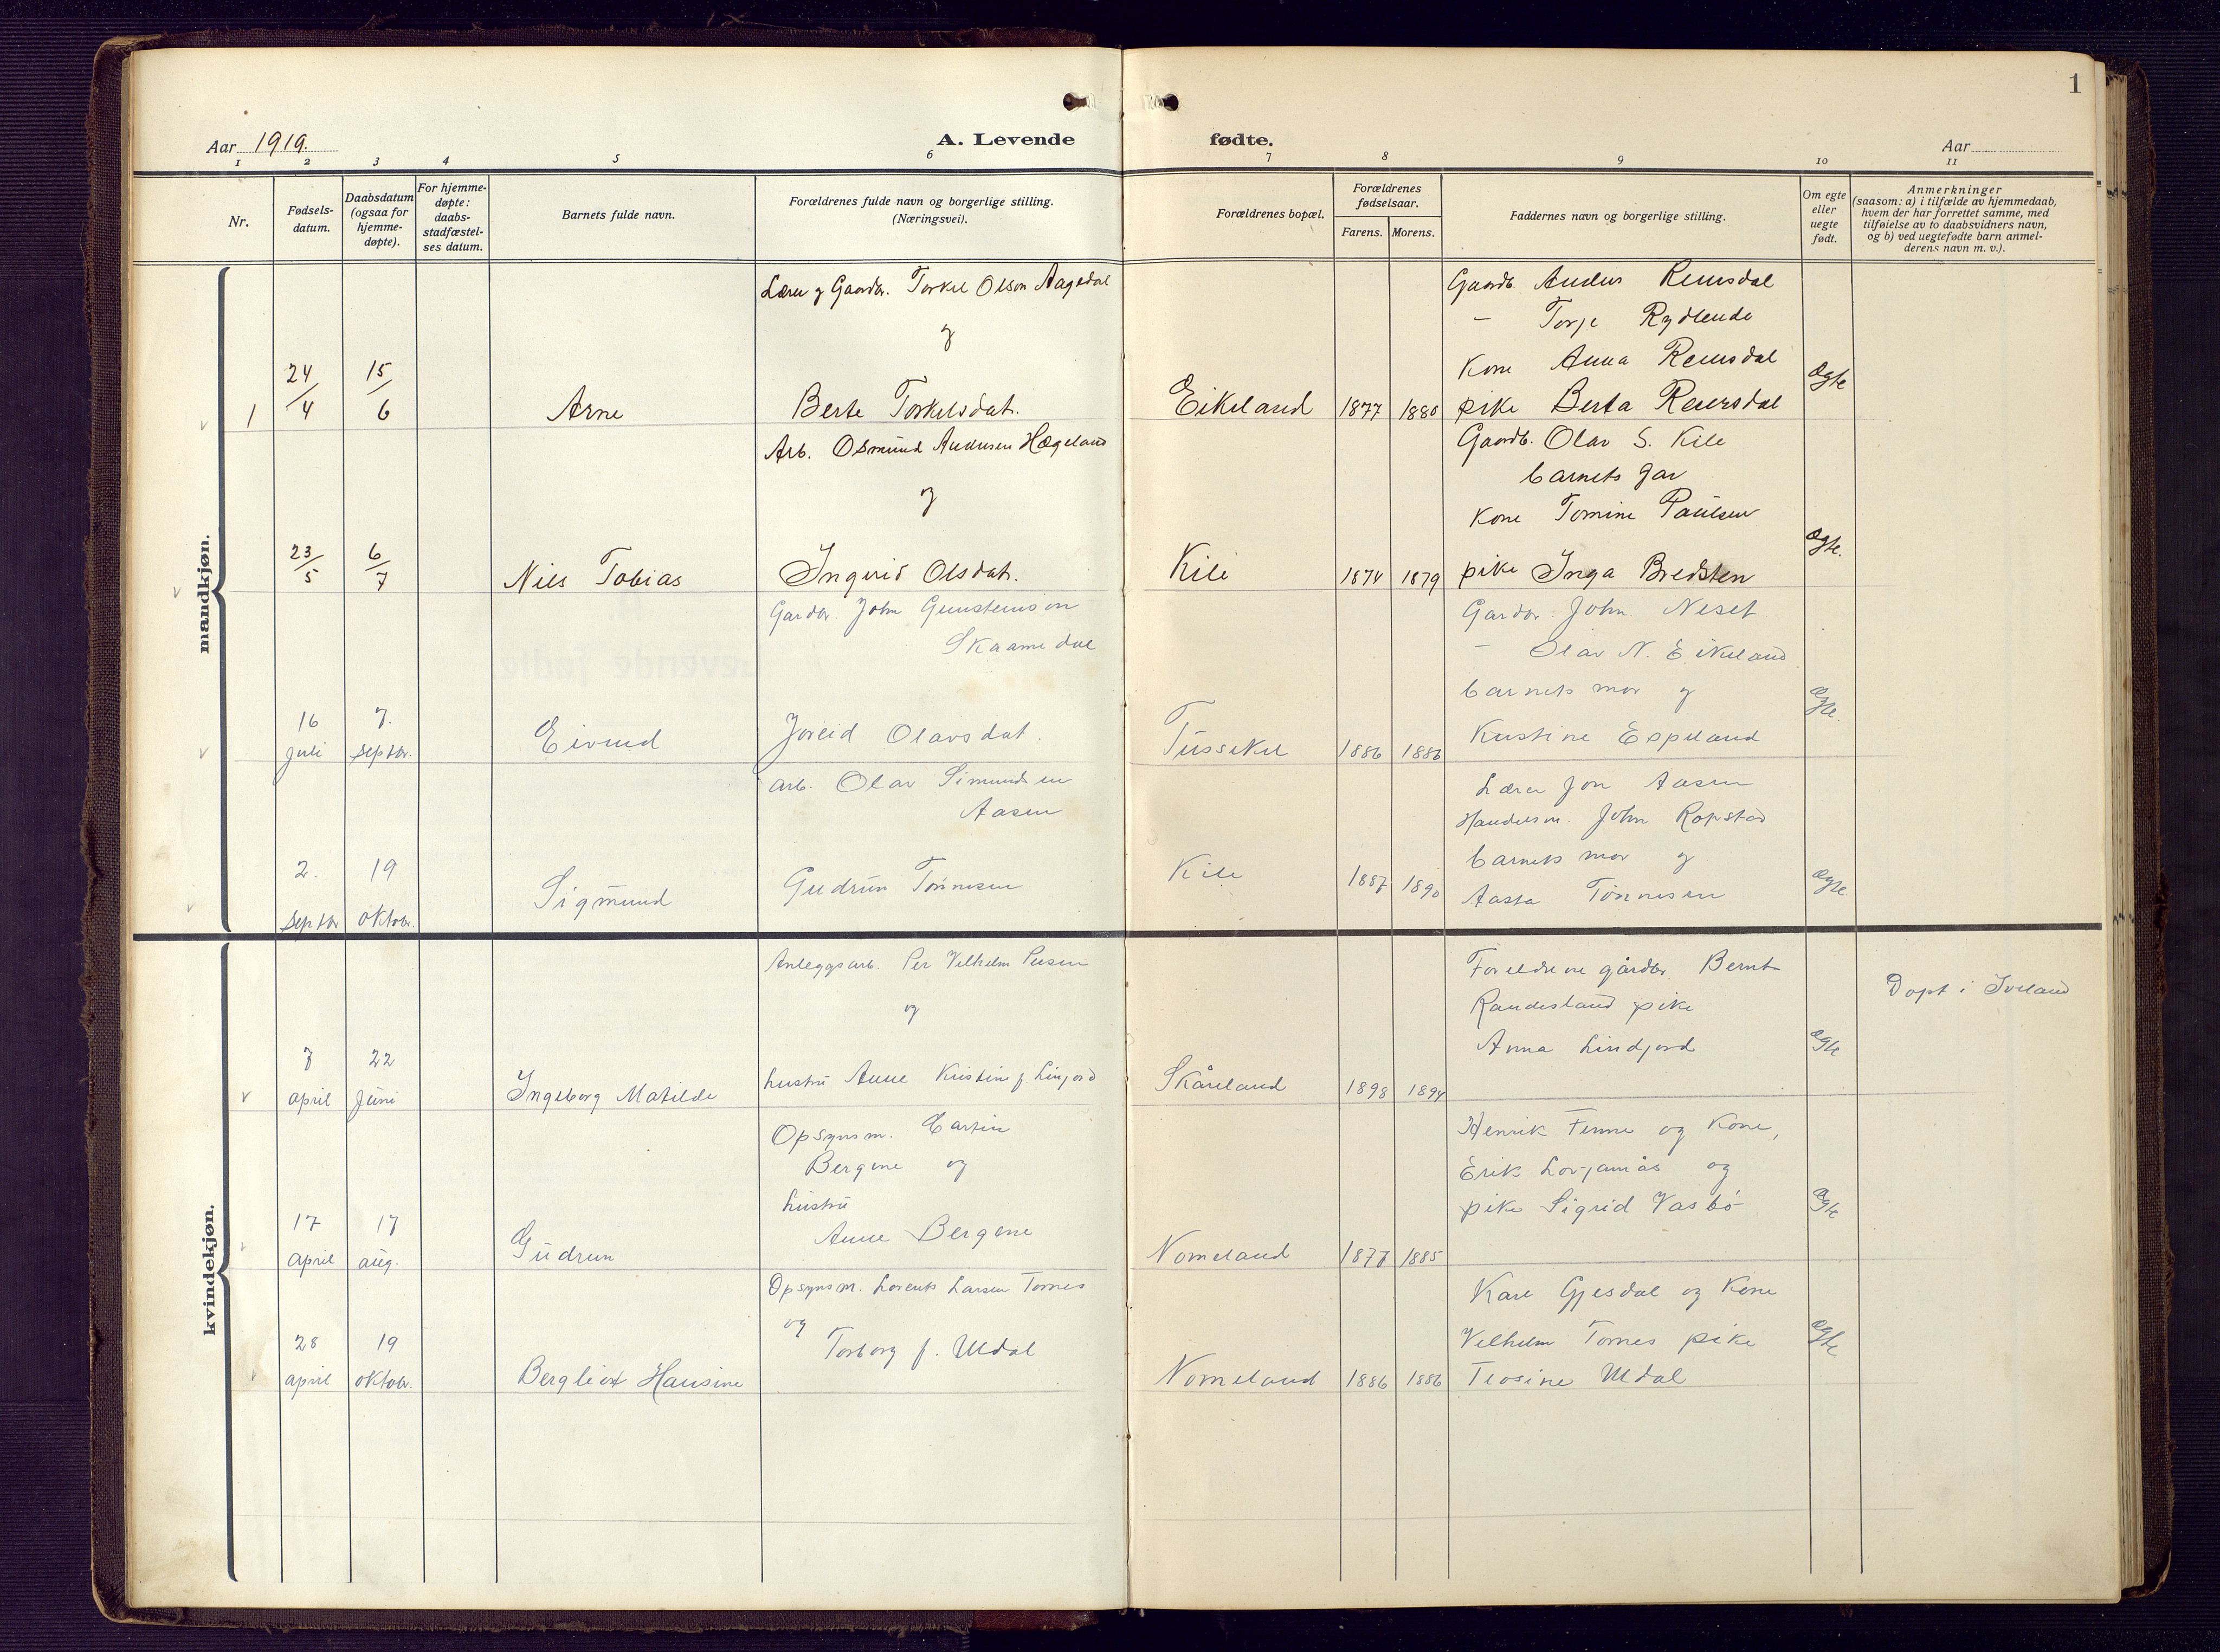 1
Aar 1919.
A. Levende fødte.
Aar
1 2 3 4 5 6 7 8 9 10 11
Nr.
Fødsels-
datum.
Daabsdatum
(ogsaa for
hjemme-
døpte).
For hjemme-
døpte:
daabs-
stadfæstel-
ses datum.
Barnets fulde navn.
Forældrenes fulde navn og borgerlige stilling.
(Næringsvei).
Forældrenes bopæl.
Forældrenes
fødselsaar.
Farens. Morens.
Faddernes navn og borgerlige stilling.
Om egte
eller
uegte
født.
Anmerkninger
(saasom: a) i tilfælde av hjemmedaab,
hvem der har forrettet samme, med
tilføielse av to daabsvidners navn,
og b) ved uegtefødte barn anmel-
derens navn m. v.).
mandkjøn.
1
24/4
15/6
Arne
Lærer og Gaardbr. Torkel Olson Aagedal
og
Berte Torkelsdat.
Eikeland
1877 1880
Gaardb. Anders Reiersdal
- Torje Rydlende
Kone Anna Reiersdal
pike Berta Reiersdal
Ægte
23/5
6/7
Nils Tobias
Arb. Osmund Andersen Hægeland
og
Ingerid Olsdat.
Kile
1874 1879
Gaardb. Olav S. Kile
barnets far
Kone Tomine Paulsen
pike Inga Bredsten
Ægte.
16
juli
7.
septbr.
Eivind
Gardbr. John Gunsteinson
Skaamedal
Joreid Olavsdat.
Tussekil
1886 1886
Gardbr. John Neset
- Olav N. Eikeland.
barnets mor og
Kristine Eppeland
Ægte.
2.
septbr
19
oktobr.
Sigmund
arb. Olav Simundsen
Aasen
Gudrun Tønnesen
Kile
1887 1890
Lærer Jon Aasen
Handelsm. John Ropstad
barnets mor og
Aasta Tønnesen
Ægte
kvindekjøn.
7
april
22
juni
Ingeborg Matilde
Anleggsarb. Per Vilhelm Persen
og
hustru Anne Kristine f. Linjord
Skåreland
1898 1894
Foreldrene gårdbr. Bernt
Randesland pike
Anna Lindjord
Ægte
Døpt i Iveland
17
april
17
aug.
Gudrun
Opsynsm. Martin
Bergene og
hustru
Anne Bergene
Nomeland
1877 1885
Henrik Finne og Kone,
Erik og
pike Sigrid Vasbø
Ægte
28
april
19
oktobr.
Bergliot Hansine
Opsynsm. Lorents Larsen Tornes
og
Torborg f. Uldal
Nomeland
1886 1886
Kare Gjesdal og Kone
Vilhelm Tornes pike
Teosine Uldal
Ægte